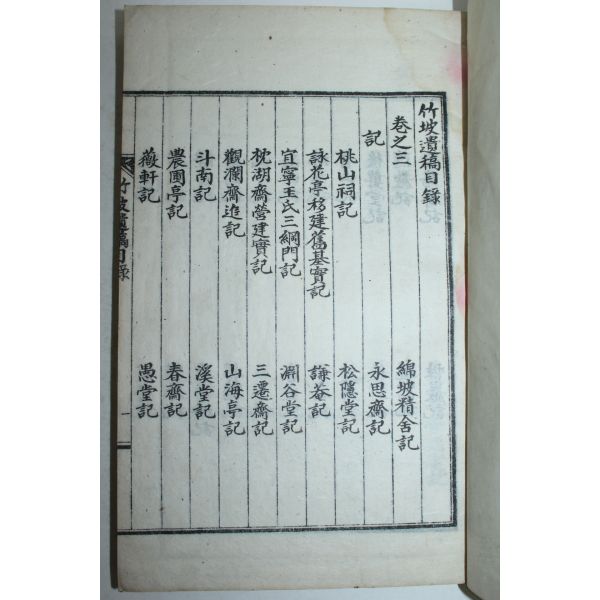 竹坡遺稿目錄
卷之三
綿坡精舍記
記
永思齋記
桃山祠記
松隱堂記
詠花亭移建舊基實記
謙菴記
宜寧玉氏三綱門記
淵谷堂記
枕湖齋營建實記
三遷齋記
觀瀾齋追記
山海亭記
斗南記
溪堂記
農圃亭記
春齋記
薇軒記
愚堂記
竹坡遺稿目錄
一